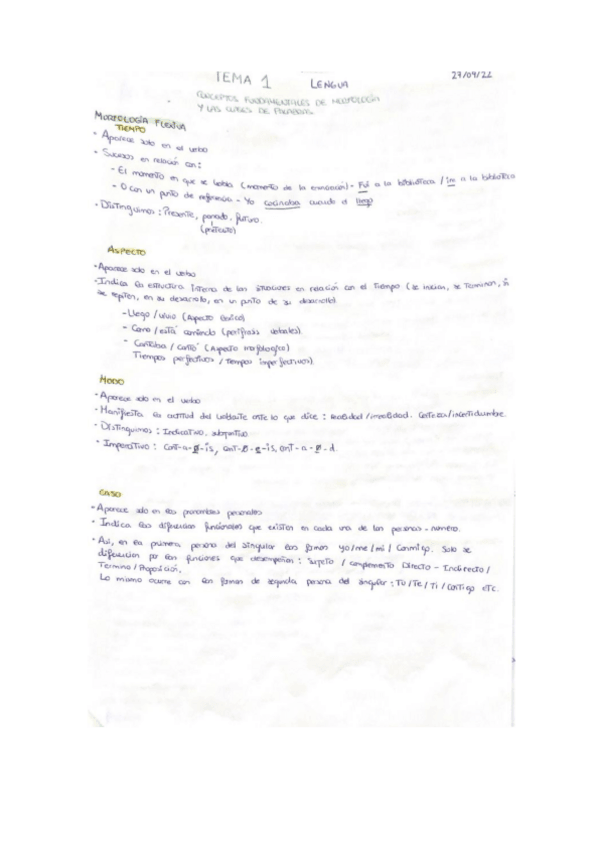 TEMA 1 LENGUA 27/09/22
CONCEPTOS FUNDAMENTALES DE MORFOLOGÍA
Y LAS CLASES DE PALABRAS.
MORFOLOGÍA FLEXIVA
TIEMPO
- Aparece solo en el verbo
- Sucesos en relación con:
- El momento en que se habla (momento de la enunciación) - Fui a la biblioteca / iré a la biblioteca
- O con un punto de referencia - Yo cocinaba cuando él llegó
- Distinguimos: Presente, pasado, futuro.
(pretérito)
ASPECTO
- Aparece solo en el verbo
- Indica la estructura interna de las situaciones en relación con el tiempo (se inician, se terminan, si
se repiten, en su desarrollo, en un punto de su desarrollo)
- Llego / vivo (Aspecto léxico)
- Come / está comiendo (perífrasis verbales).
- Cantaba / cantó (Aspecto morfológico)
Tiempos perfectivos / tiempos imperfectivos)
MODO
- Aparece solo en el verbo
- Manifiesta la actitud del hablante ante lo que dice: realidad / irrealidad. certeza/incertidumbre.
- Distinguimos: Indicativo, subjuntivo
- Imperativo: Cant-a-Ø-is, cant-Ø-e-is, cant-a-Ø-d.
CASO
- Aparece solo en los pronombres personales
- Indica las diferencias funcionales que existen en cada una de las personas - número.
- Así, en la primera persona del singular las formas yo/me/mí/Conmigo. Solo se
diferencian por las funciones que desempeñan: Sujeto / complemento Directo - Indirecto /
Término / Preposición.
Lo mismo ocurre con las formas de segunda persona del singular: Tú/Te/Ti/contigo etc.